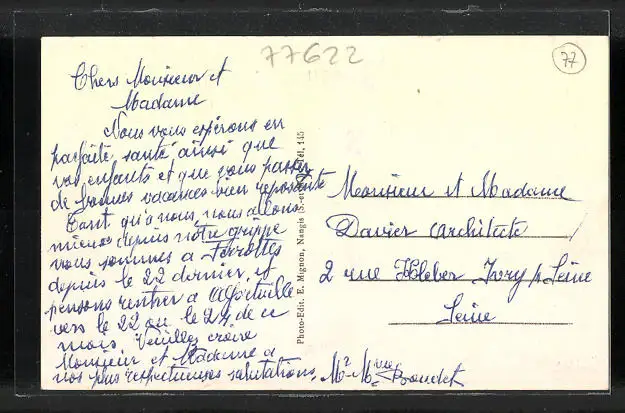 77622
77
Chers Monsieur et
Madame
Nous vous espérons en
parfaite santé ainsi que
vos enfants et que vous passez
de bonnes vacances bien reposante
Tant qu'a nous, nous allons
mieux depuis nôtre grippe
vous sommes a Ferrottes
depuis le 22 dernier et
pensons rentrer a Alfortville
vers le 22 ou le 24 de ce
mois, Veuillez croire
Monsieur et Madame a
nos plus respectueuses salutations.
Mr Mme Boudet
Photo-Edit. E. Mignon, Nangis Tél. 145
Monsieur et Madame
Davier architecte
2 rue Kleber Ivry s/ Seine
Seine